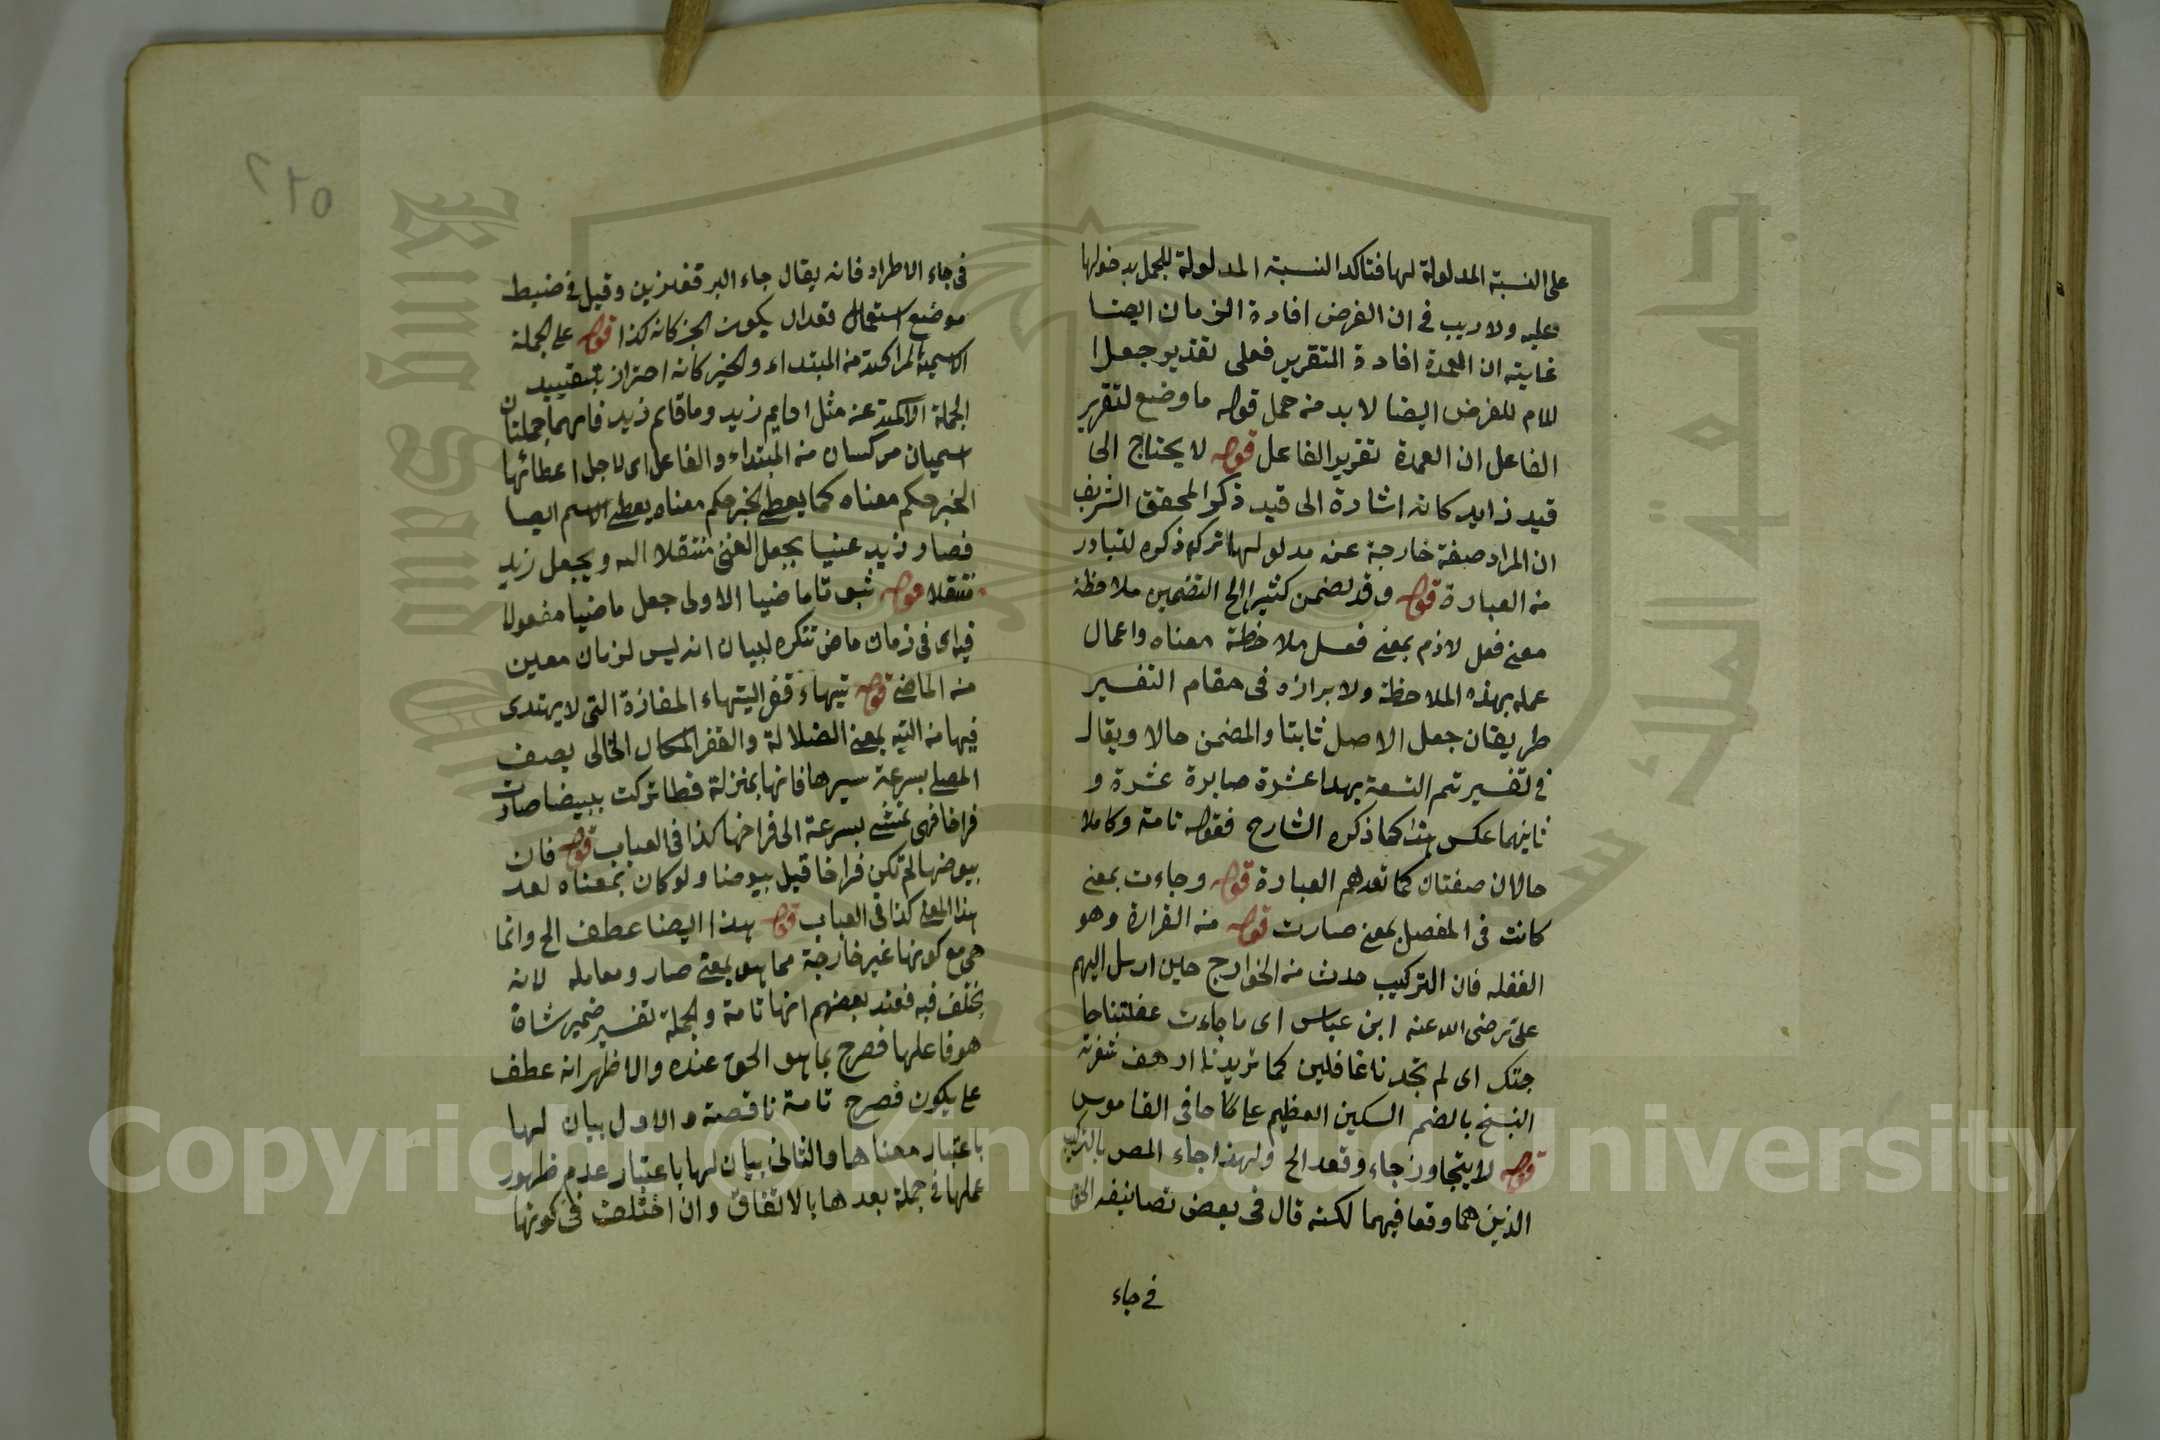 على النسبة المدلولة لها فتاكد النسبة المدلولة للجمل بدخولها
عليه ولا ريب في ان الغرض افادة الزمان ايضا
غايته ان العمدة افادة التقرير فعلى تقدير جعل
اللام للغرض ايضا لا بد من حمل قوله ما وضع لتقرير
الفاعل ان العمدة تقرير الفاعل قوله لا يحتاج الى
قيد زايد كانه اشارة الى قيد ذكر المحقق الشريف
ان المراد صفة خارجة عن مدلولها ترك ذكره لتبادر
من العبارة قوله وقد تضمن كثير الخ التضمين ملاحظة
معنى فعل لازم بمعنى فعل ملاحظة معناه واعمال
عمله بهذه الملاحظة ولابرازه في مقام التفسير
طريقان جعل الاصل ثابتا والمضمن حالا ويقال
في تفسير تتم التسعة بهذا عشرة صايرة عشرة و
ثانيهما عكس هذا كما ذكره الشارح فقوله تامة وكاملا
حالان صفتان كما توهم العبارة قوله وجاءت بمعنى
كانت في المفصل بمعنى صارت قوله من القرارة وهو
الغفلة فان التركيب حدث من الخوارج حين ارسل اليهم
على رضى الله عنه ابن عباس اى ما جاءت غفلتنا حا
جتك اى لم تجدنا غافلين كما تريدنا ارهف شفرته
بالضم السكين العظيم على ما في القاموس
قوله لا يتجاوز جاء وقعد الخ ولهذا جاء المص بالتركيب
الذين هما وقعا فيهما لكنه قال في بعض تصانيفه الحق
في جاء
٢٢٥
في جاء الاطراد فانه يقال جاء البر قفيزين وقيل في ضبط
موضع استعمال قعد ان يكون الخبر كانه كذا قوله على الجملة
الاسمية المركبة من المبتداء والخبر كانه احتراز بتقييد
الجملة الاسمية عن مثل اقايم زيد وما قائم زيد فانهما جملتان
اسميان مركبان من المبتداء والفاعل اى لاجل اعطائها
الخبر حكم معناه كما يعطى الخبر حكم معناه يعطى الاسم ايضا
فصار زيد غنيا يجعل الغنى منتقلا اليه ويجعل زيد
منتقلا قوله ثبوتا ماضيا الاولى جعل ماضيا مفعولا
فيه اى في زمان ماض تنكره لبيان انه ليس لزمان معين
من الماضى قوله تيهاء قفر التيهاء المفازة التى لا يهتدى
فيها من التيه بمعنى الضلالة والقفر المكان الخالى يصف
المطى بسرعة سيرها فانها بمنزلة قطا تركت بيضا صارت
فراخا فهى تمشى بسرعة الى فراخها كذا في العباب قوله فان
بيوضها لم تكن فراخا قيل بيوضا ولو كان بمعناه لفسد
هذا المعنى كذا في العباب قوله هذا ايضا عطف الخ وانما
هى مع كونها غير خارجة مما هو بمعنى صار ومعامله لانه
يختلف فيه فعند بعضهم انها تامة والجملة تفسير ضمير شان
هو فاعلها فصرح بما هو الحق عنده والاظهر انه عطف
على يكون فصرح تامة ناقصة والاول بيان لها
باعتبار معناها والثانى بيان لها باعتبار عدم ظهور
عملها في جملة بعدها بالاتفاق وان اختلف في كونها
جامعة الملك سعود
King Saud University
1957
Copyright © King Saud University